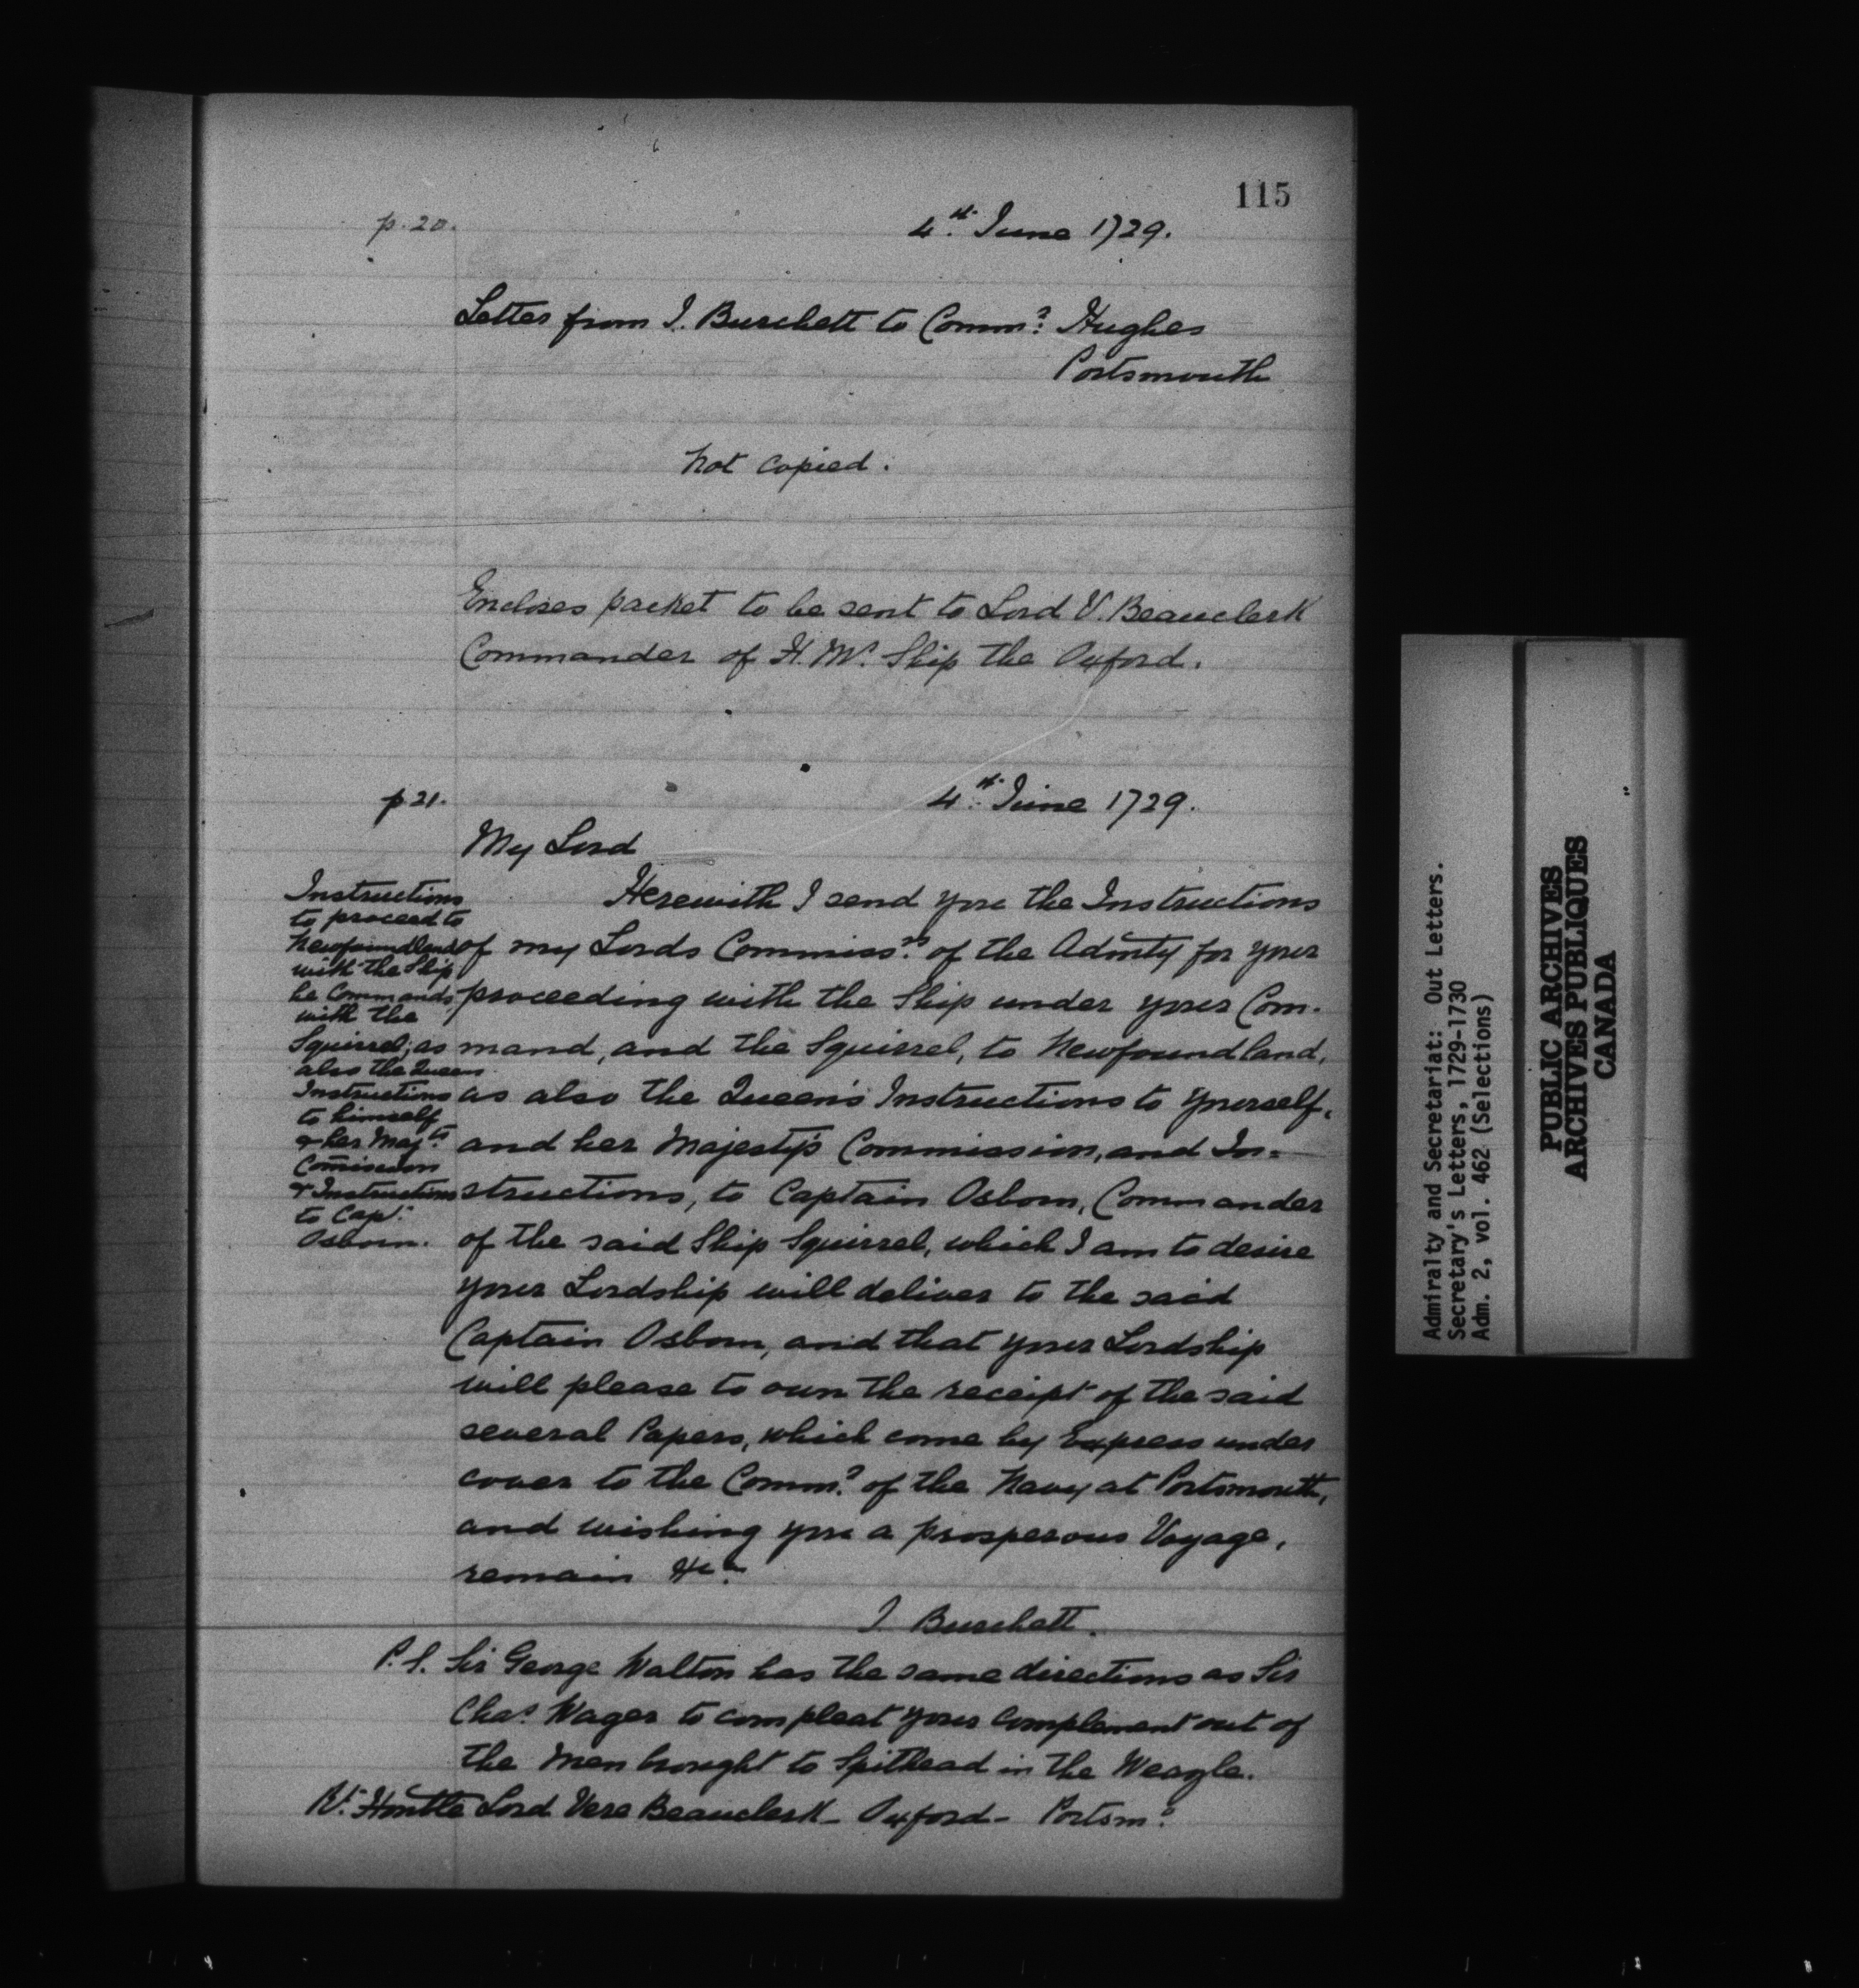 115
p. 20.
4th. June 1729.
Letter from J. Burchett to Commr. Hughes
Portsmouth
Not copied.
Encloses packet to be sent to Lord V. Beauclerk
Commander of H. Ms. Ship the Oxford.
p 21.
4th. June 1729.
My Lord
Instructions
to proceed to
Newfoundland
with the Ship
he Commands,
with the
Squirrel; as
also the Queens
Instructions
to himself
& her Majts.
Commission
& Instructions
to Capt.
Osborn.
Herewith I send you the Instructions
of my Lords Commissrs. of the Admty for your
proceeding with the Ship under your Com-
mand, and the Squirrel, to Newfoundland,
as also the Queen's Instructions to yourself,
and her Majesty's Commission, and In=
structions, to Captain Osborn, Commander
of the said Ship Squirrel, which I am to desire
your Lordship will deliver to the said
Captain Osborn, and that your Lordship
will please to own the receipt of the said
several Papers, which come by Express under
cover to the Commr. of the Navy at Portsmouth,
and wishing you a prosperous Voyage,
remain &ca.
J Burchett.
P.S. Sir George Walton has the same directions as Sir
Chas. Wager to compleat your Complement out of
the Men brought to Spithead in the Weazle.
Rt. Honble Lord Vere Beauclerk - Oxford - Portsmo.
Admiralty and Secretariat: Out Letters.
Secretary's Letters, 1729-1730
Adm. 2, vol. 462 (Selections)
PUBLIC ARCHIVES
ARCHIVES PUBLIQUES
CANADA